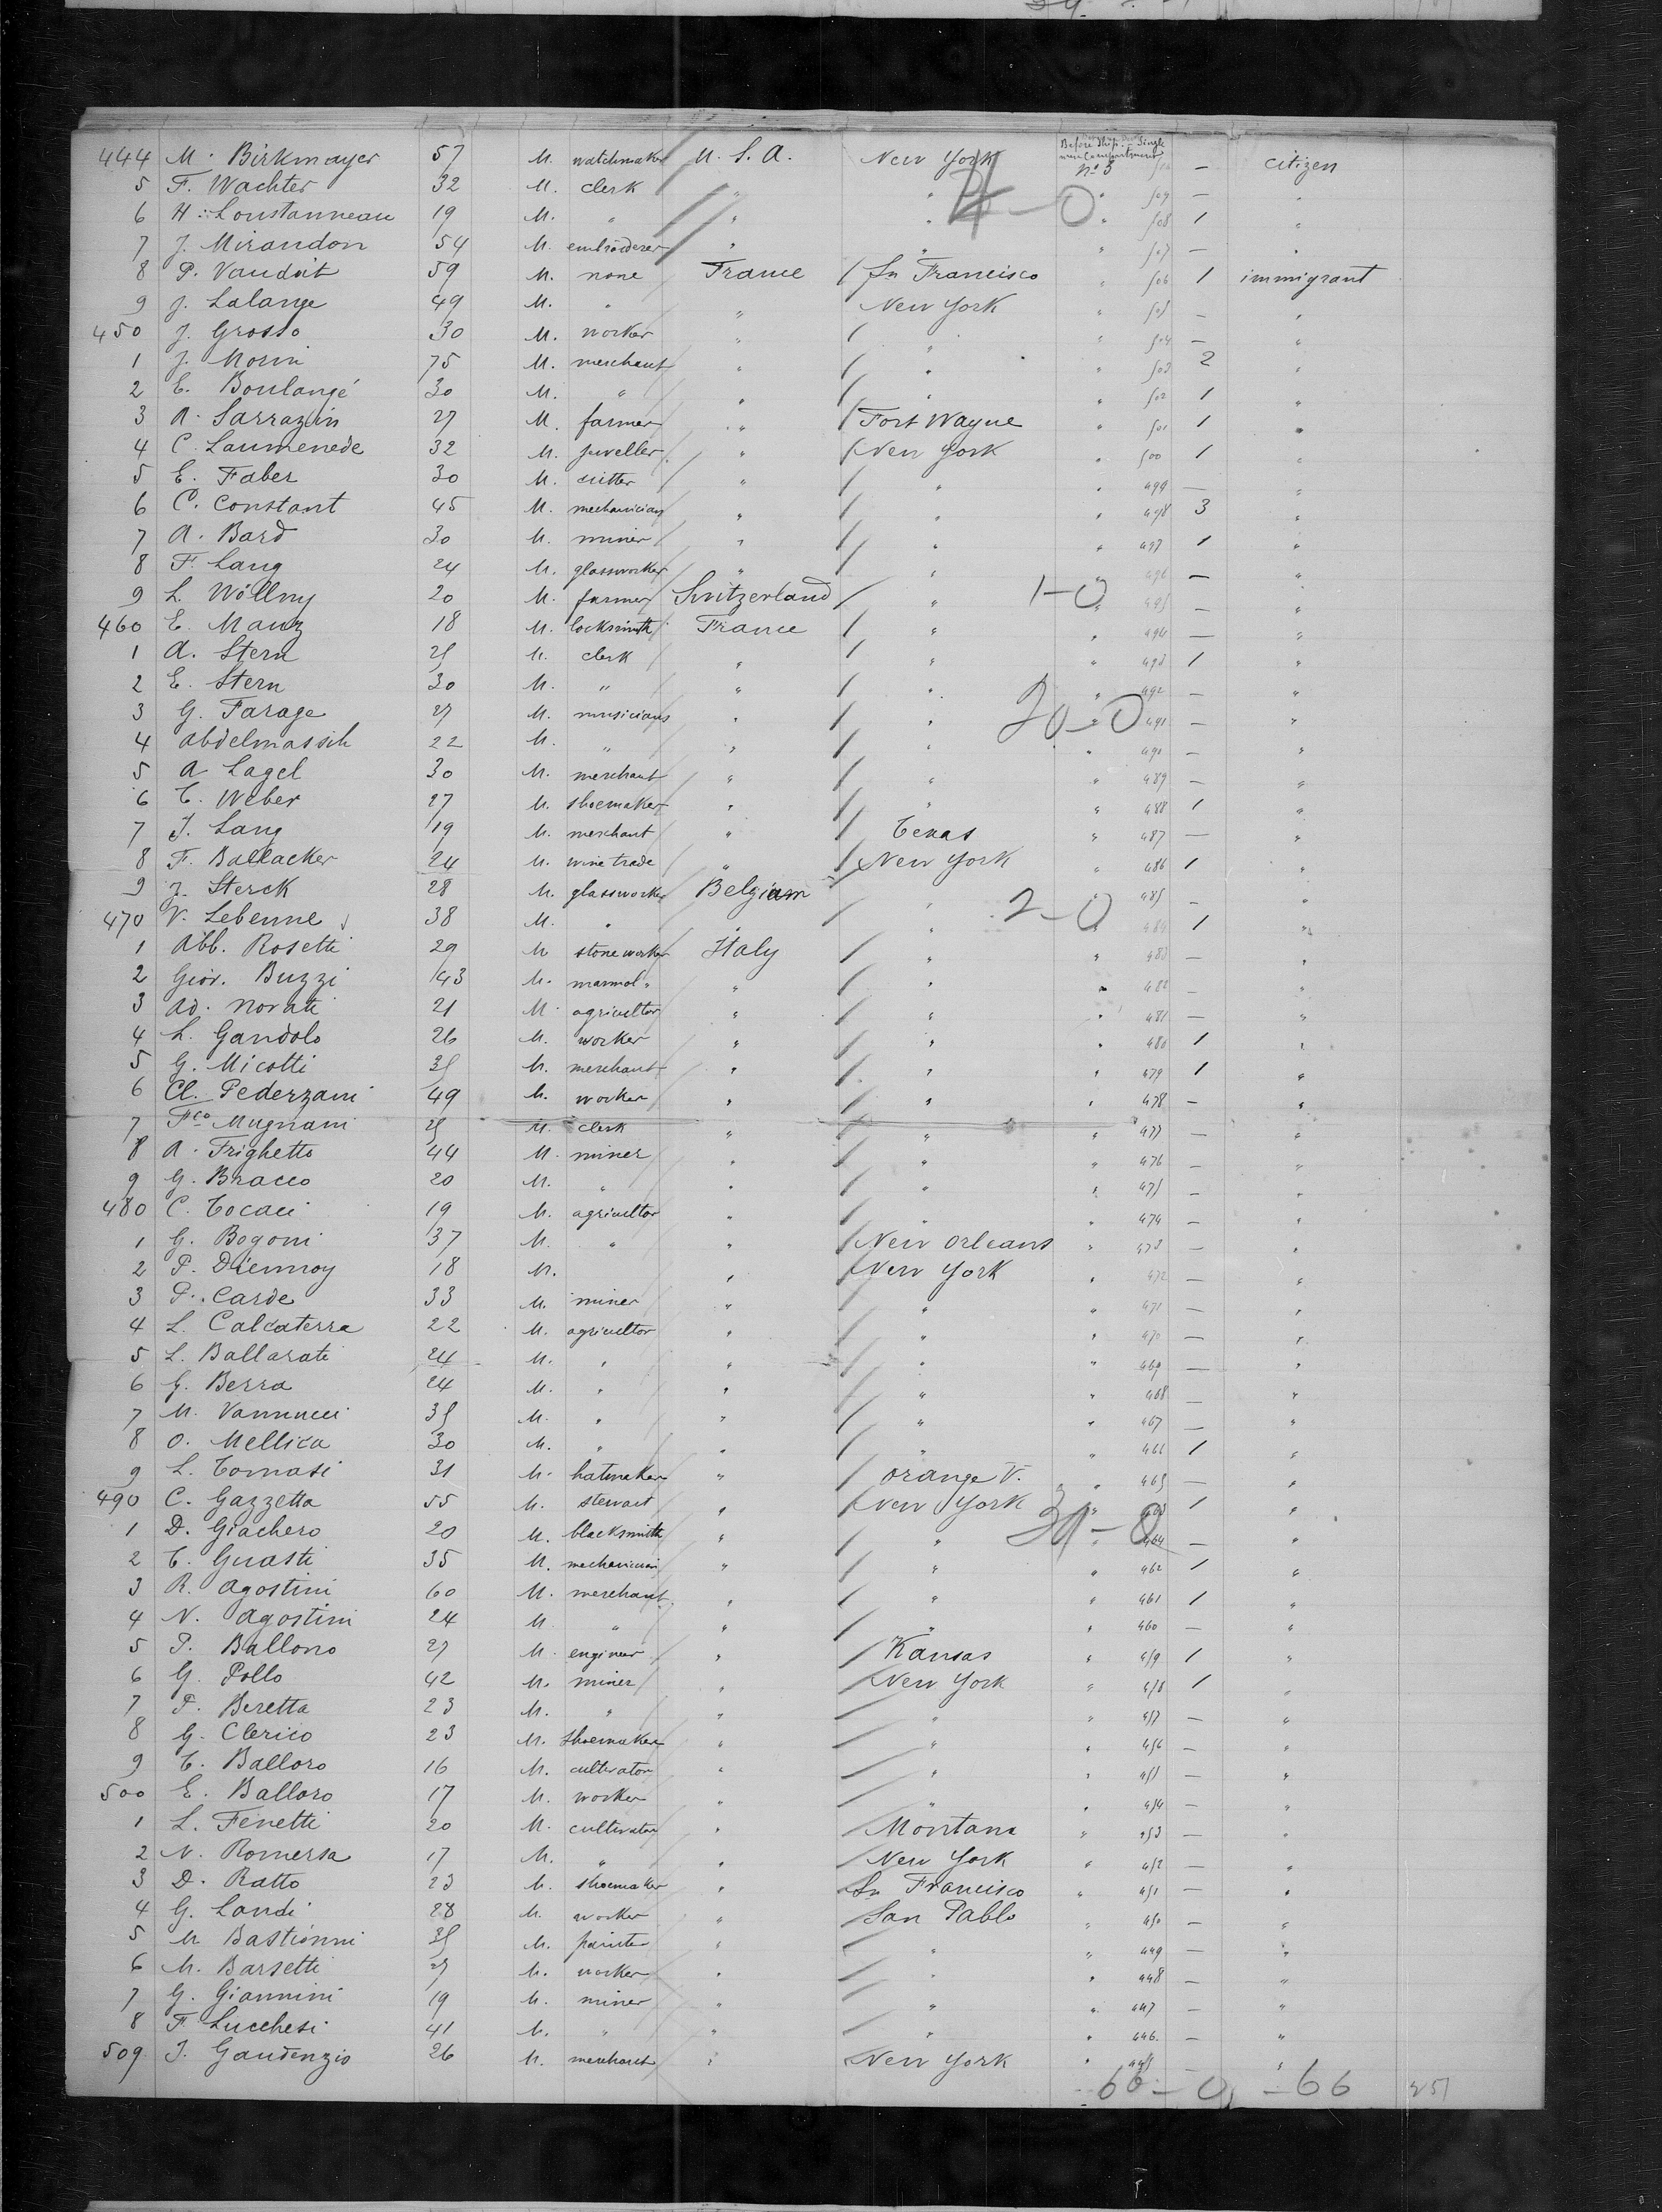 444 M. Birkmayer 57 M. watchmaker U.S.A. New York Before Ship. Single men Compartment No 3 — citizen
5 F. Wachter 32 M. clerk " " " 509 — "
6 H. Loustanneau 19 M. " " " " 508 1 "
7 J. Mirandon 54 M. embroiderer " " " 507 — "
8 P. Vaudoit 59 M. none France Sn Francisco " 506 1 immigrant
9 J. Lalange 49 M. " " New York " 505 — "
450 J. Grosso 30 M. worker " " " 504 — "
1 J. Morin 75 M. merchant " " " 503 2 "
2 E. Boulangé 30 M. " " " " 502 1 "
3 A. Sarrazin 27 M. farmer " Fort Wayne " 501 1 "
4 C. Laumenede 32 M. juveller " New York " 500 1 "
5 E. Faber 30 M. cutter " " " 499 — "
6 C. Constant 45 M. mechanician " " " 498 3 "
7 A. Bard 30 M. miner " " " 497 1 "
8 F. Lang 24 M. glassworker " " " 496 — "
9 L. Wöllny 20 M. farmer Switzerland " 1-0 " 495 — "
460 E. Manz 18 M. locksmith France " " 494 — "
1 A. Stern 25 M. clerk " " " 493 1 "
2 E. Stern 30 M. " " " " 492 — "
3 G. Farage 27 M. musicians " " 20-0 491 — "
4 Abdelmassih 22 M. " " " " 490 — "
5 A Lagel 30 M. merchant " " " 489 — "
6 T. Weber 27 M. shoemaker " " " 488 1 "
7 J. Lang 19 M. merchant " Texas " 487 — "
8 F. Ballacker 24 M. wine trade " New York " 486 1 "
9 J. Sterck 28 M. glassworker Belgium " " 485 — "
470 V. Lebenne 38 M. " " " 2-0 484 1 "
1 Abb. Rosetti 29 M stone worker Italy " " 483 — "
2 Giov. Buzzi 43 M. marmol. " " " 482 — "
3 Ad. Novati 21 M. agricultor " " " 481 — "
4 L. Gandolo 26 M. worker " " " 480 1 "
5 G. Micotti 35 M. merchant " " " 479 1 "
6 Cl. Pederzani 49 M. worker " " " 478 — "
7 Fco Mugnani 25 M. clerk " " " 477 — "
8 A. Frighetto 44 M. miner " " " 476 — "
9 G. Bracco 20 M. " " " " 475 — "
480 C. Tocaci 19 M. agricultor " " " 474 — "
1 G. Bogoni 37 M. " " New Orleans " 473 — "
2 P. Diemoy 18 M. " New York " 472 — "
3 P. Carde 33 M. miner " " " 471 — "
4 L. Calcaterra 22 M. agricultor " " " 470 — "
5 L. Ballarati 24 M. " " " " 469 — "
6 G. Berra 24 M. " " " " 468 — "
7 M. Vannucci 35 M. " " " " 467 — "
8 O. Mellica 30 M. " " " " 466 1 "
9 L. Tomasi 31 M. hatmaker " Orange V. " 465 — "
490 C. Gazzetta 55 M. stewart " New York " 1 "
1 D. Giachero 20 M. blacksmith " " 464 — "
2 T. Guasti 35 M. mechanician " " " 462 1 "
3 R. Agostini 60 M. merchant " " " 461 1 "
4 N. Agostini 24 M " " " " 460 — "
5 P. Ballono 27 M. engineer " Kansas " 459 1 "
6 G. Pollo 42 M. miner " New York " 458 1 "
7 P. Beretta 23 M. " " " " 457 — "
8 G. Clerico 23 M. Shoemaker " " " 456 — "
9 T. Balloro 16 M. cultivator " " " 455 — "
500 E. Balloro 17 M. worker " " " 454 — "
1 L. Fenetti 20 M. cultivator " Montana " 453 — "
2 N. Romersa 17 M. " " New York " 452 — "
3 D. Ratto 23 M. shoemaker " Sn Francisco " 451 — "
4 G. Landi 28 M. worker " San Pablo " 450 — "
5 M Bastionni 35 M. painter " " " 449 — "
6 M. Barsetti 27 M. worker " " " 448 — "
7 G. Giannini 19 M. miner " " " 447 — "
8 F Lucchesi 41 M. " " " " 446 — "
509 J. Gaudenzio 26 M. merchant " New York " 445 — "
66-0 -66